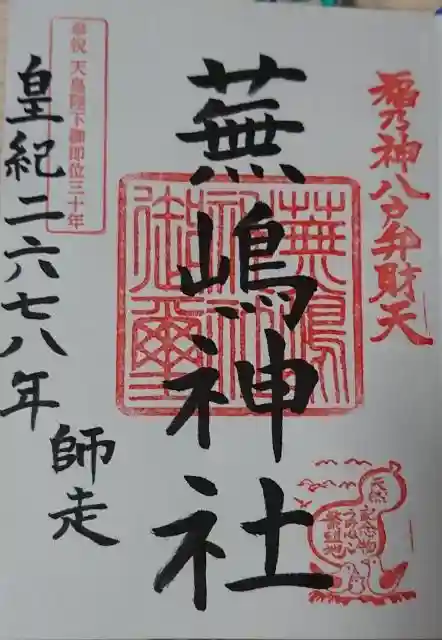 福乃神八戸弁財天
蕪嶋神社
蕪嶋神社御璽
奉祝 天皇陛下御即位三十年
皇紀二六七八年
師走
天然
記念物
うみねこ
繁殖地